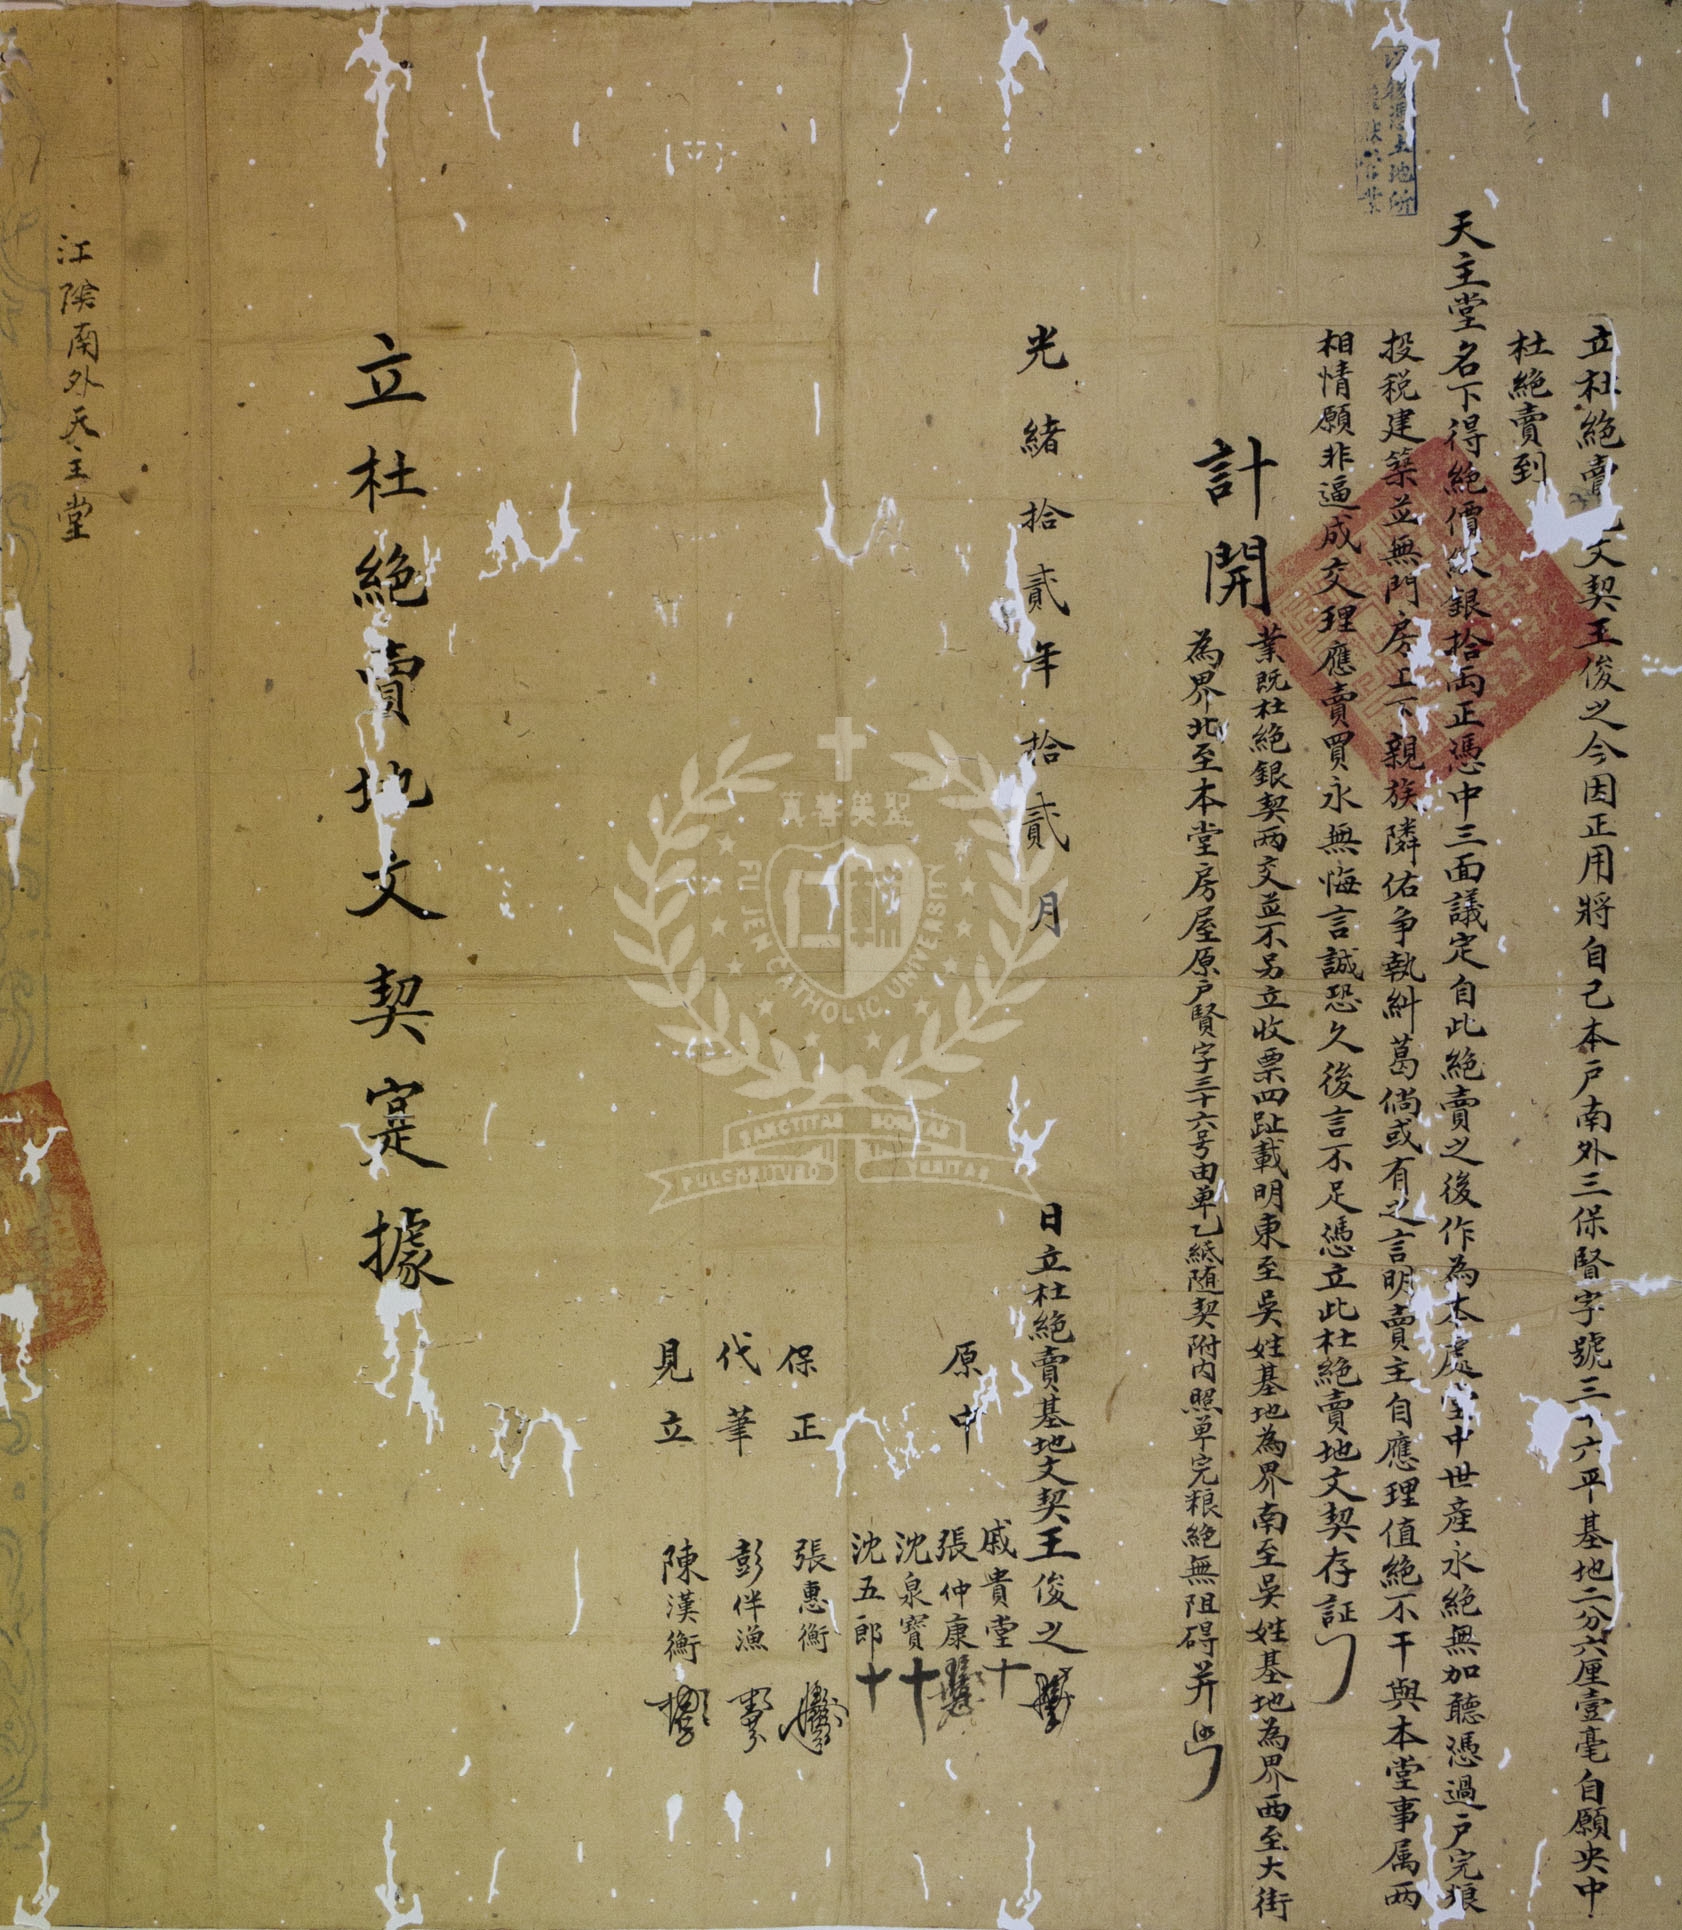 立杜絕賣文契王俊之今因正用將自己本戶南外三保賢字號三十六平基地二分六厘壹毫自願央中
杜絕賣到
天主堂名下得絕價紋銀拾両正憑中三面議定自此絕賣之後作為本處堂中世産永絕無加聽憑過戶完粮
投税建築並無門房上下親族隣佑争執糾葛倘或有之言明賣主自應理值絕不干與本堂事属両
相情願非逼成交理應賣買永無悔言誠恐久後言不足憑立此杜絕賣地文契存証
計開
業既杜絕銀契両交並不另立收票四趾載明東至吳姓基地為界南至吳姓基地為界西至大街
為界北至本堂房屋原戶賢字三十六号由单乙紙随契附内照单完粮絕無阻碍并照
光緒拾貳年拾貳月 日立杜絕賣基地文契王俊之
原中 戚貴堂十
張仲康
沈泉寶十
沈五郎十
保正 張惠衡
代筆 彭伴漁
見立 陳漢衡
立杜絕賣地文契寔據
江陰南外天主堂
憑土地所
管業
真善美聖
FU JEN CATHOLIC UNIVERSITY
SANCTITAS BONITAS
PULCHRITUDO VERITAS